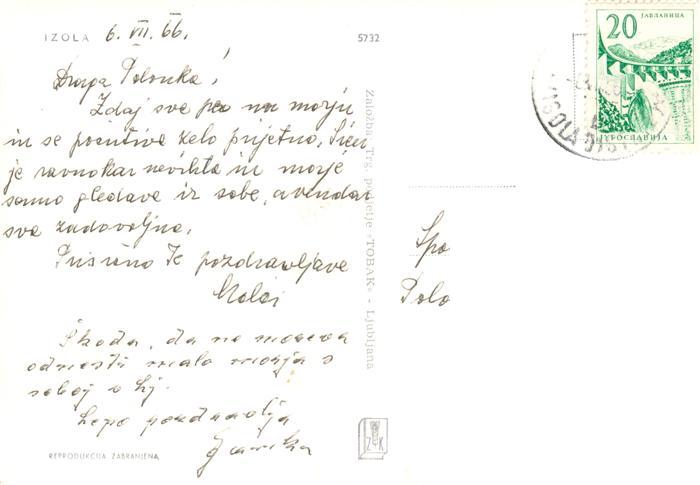 IZOLA 6. VII. 66.
5732
Draga Polonka!
Zdaj sve pa na morju
in se počutive zelo prijetno. Sicer
je ravnokar nevihta in morje
samo gledave iz sobe, a vendar
sve zadovoljne.
Prisrčno Te pozdravljave
Škoda, da ne moreva
odnesti malo morja s
seboj v Lj.
Lepo pozdravlja
REPRODUKCIJA ZABRANJENA
Založba Trg. podjetje »TOBAK« - Ljubljana
Z K
20
ЈАБЛАНИЦА
ЈУГОСЛАВИЈА
IZOLA
Spo
Polo